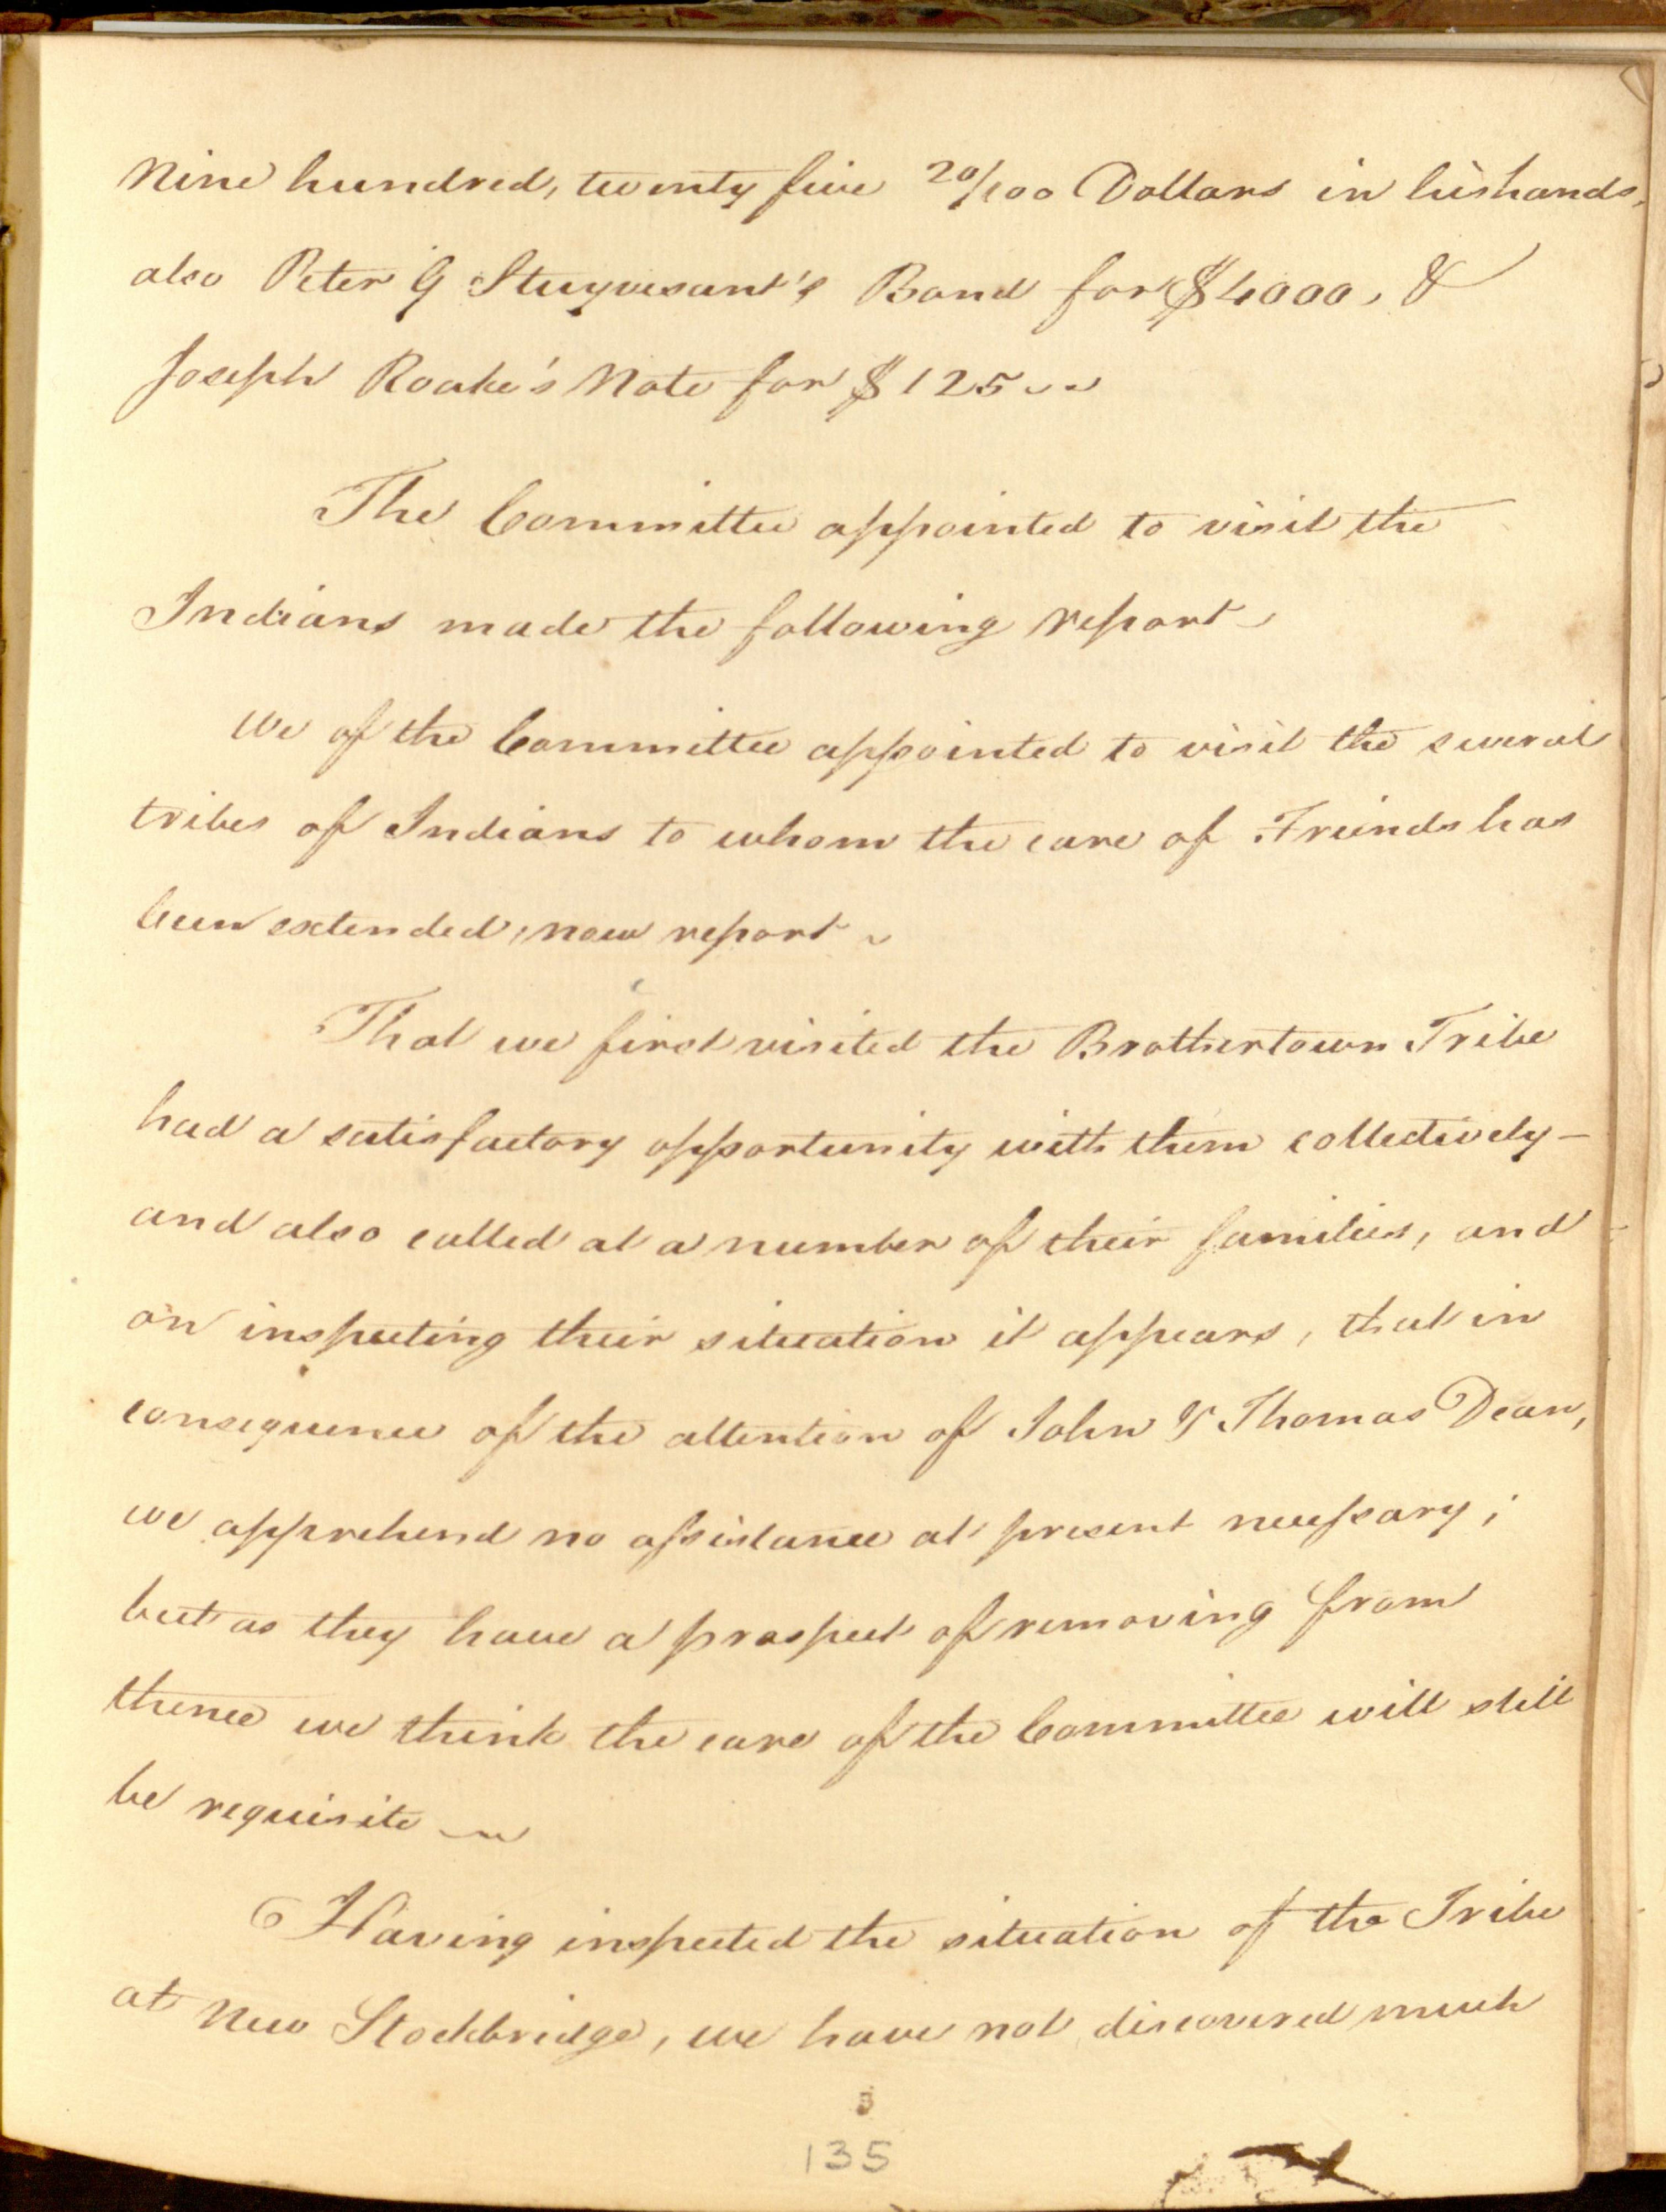 Nine hundred, twenty five 20/100 Dollars in his hands,
also Peter G Stuyvesant's Bond for $4000, &
Joseph Roake's Note for $125
The Committee appointed to visit the
Indians made the following report
We of the Committee appointed to visit the several
tribes of Indians to whom the care of Friends has
been extended, now report
That we first visited the Brothertown Tribe
had a satisfactory opportunity with them collectively –
and also called at a number of their families, and
on inspecting their situation it appears, that in
consequence of the attention of John & Thomas Dean,
we apprehend no assistance at present necessary;
but as they have a prospect of removing from
thence we think the care of the Committee will still
be requisite
Having inspected the situation of the Tribe
at New Stockbridge, we have not discovered much
135